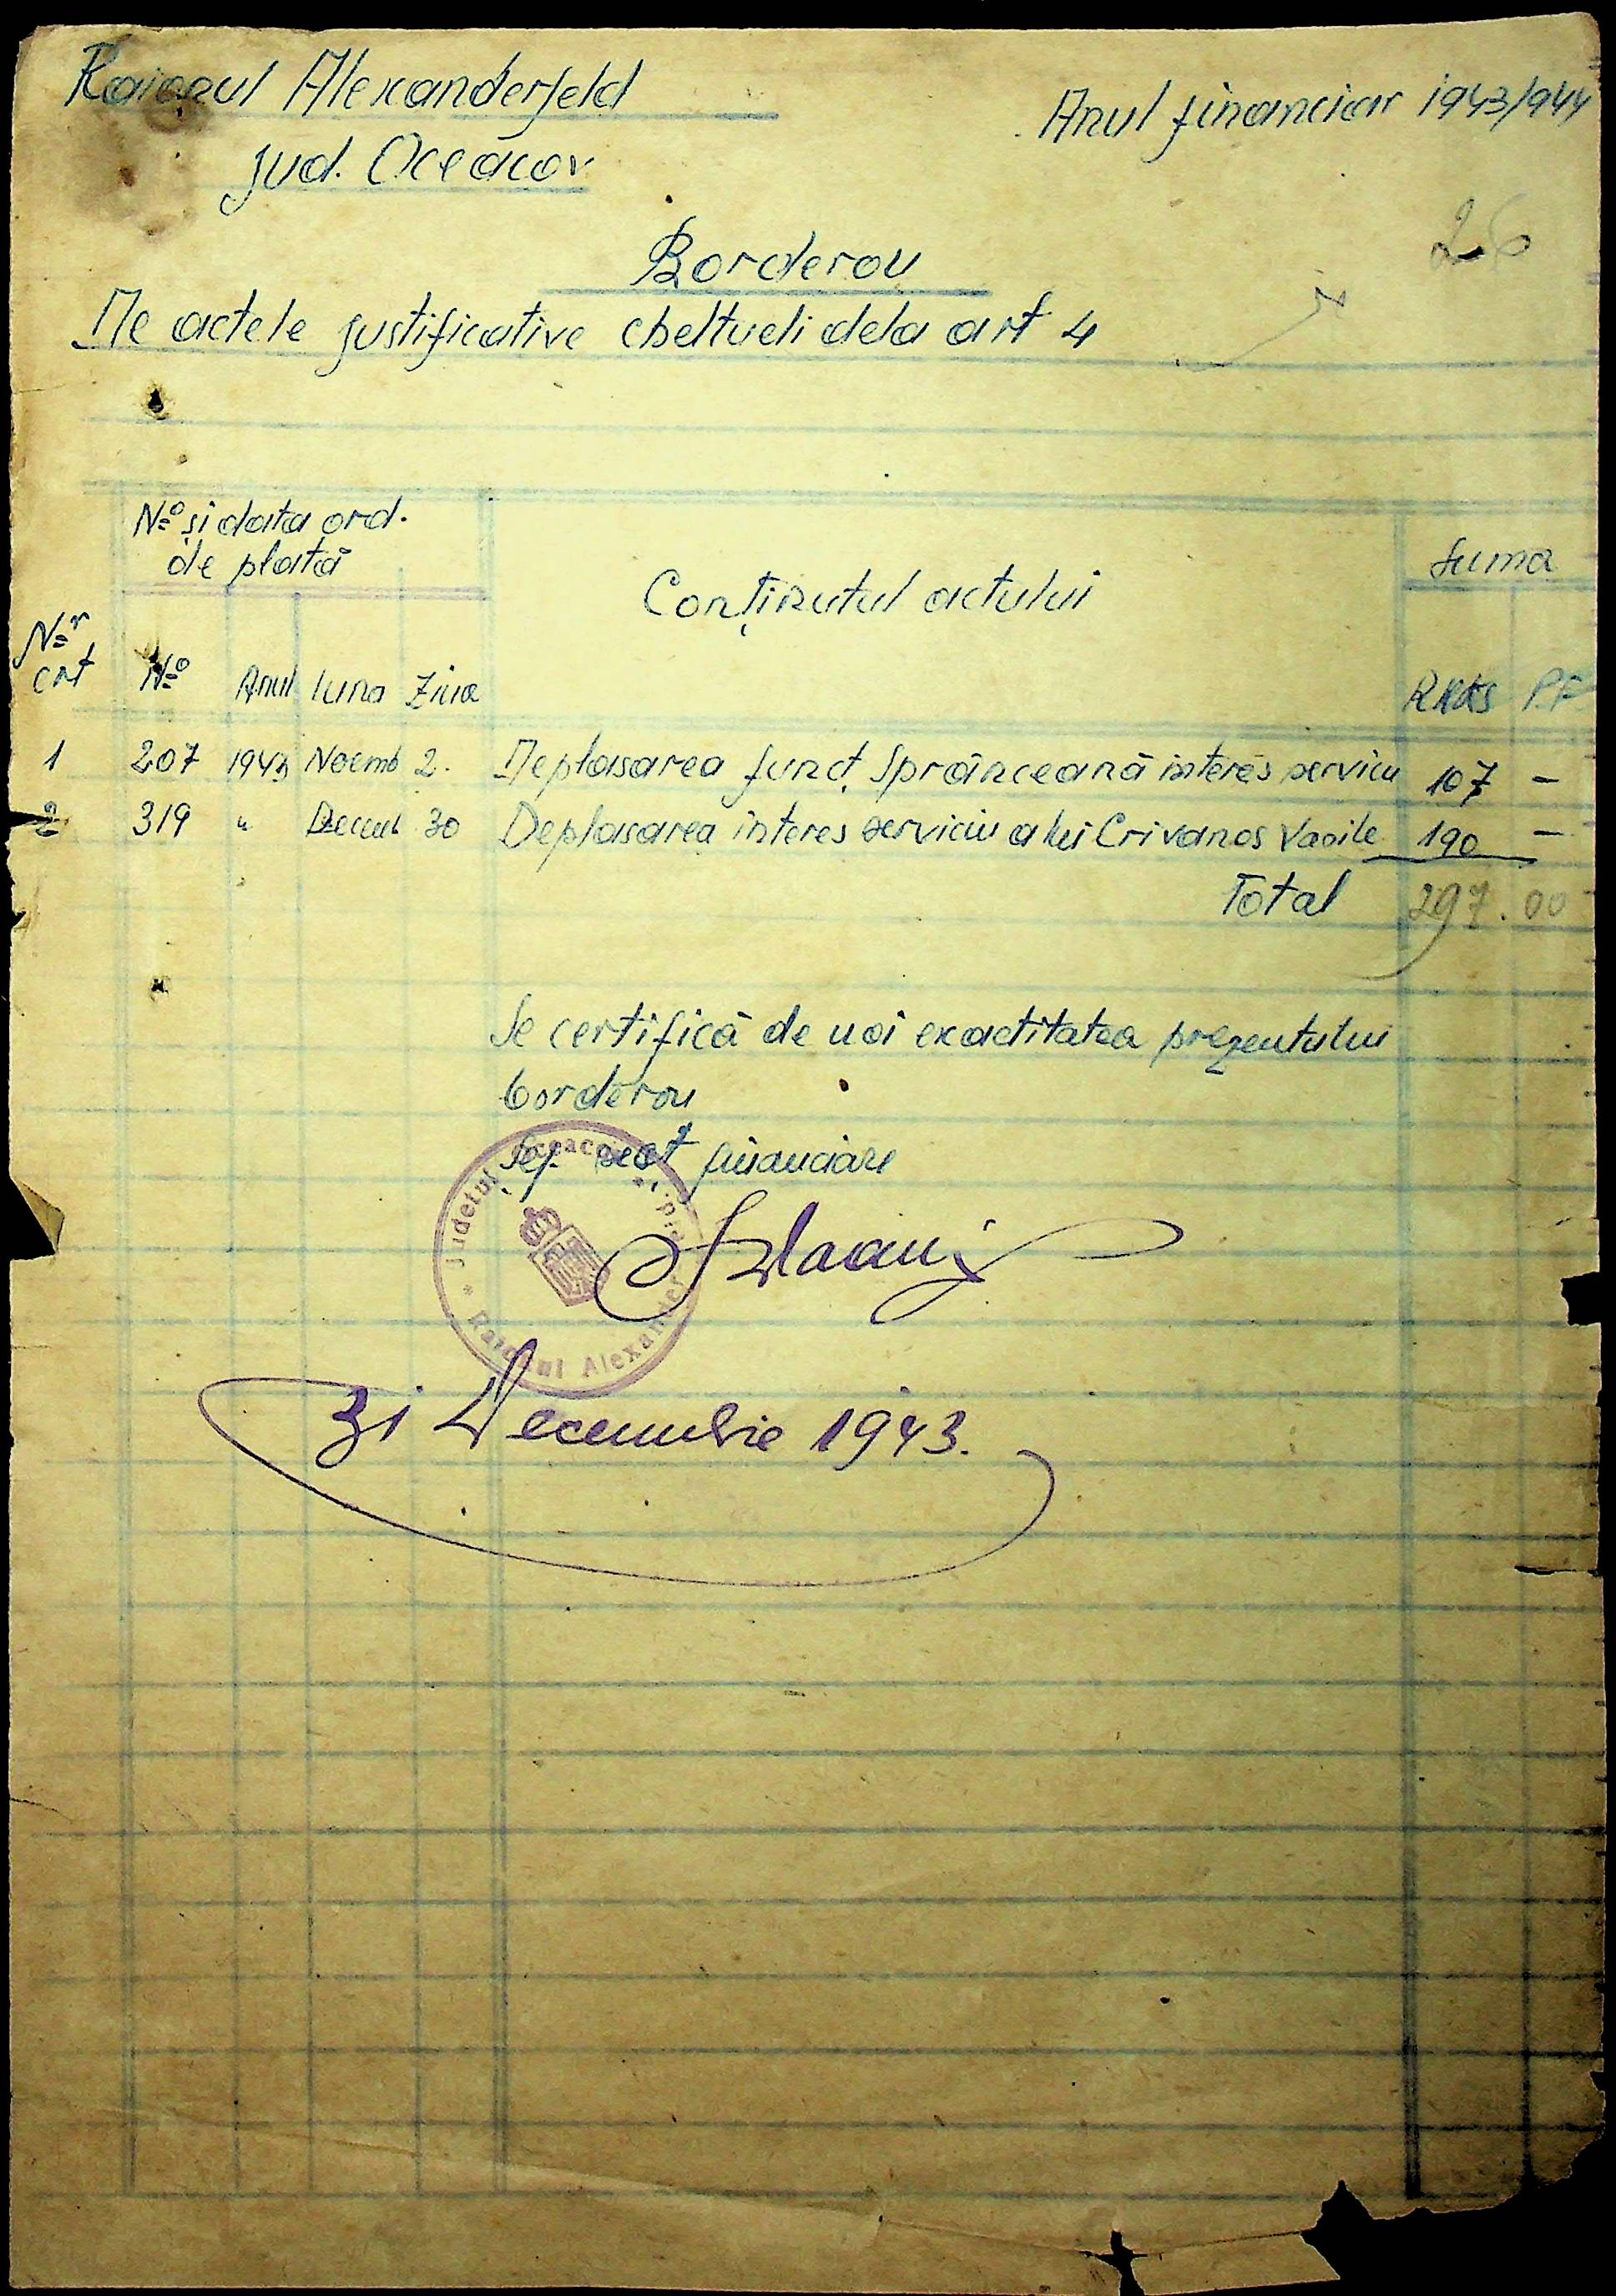 Raionul Alexanderfeld
jud. Oceacov
Anul financiar 1943/944
26
Borderou
De actele justificative cheltueli dela art 4
No și data ord.
de plată
Conținutul actului
Suma
Nr
crt
No Anul luna Ziua
RKKS P.F
1 207 1943 Noemb 2. Deplasarea funcț. Sprânceană interes serviciu 107 —
2 319 " Decemb 30 Deplasarea interes serviciu a lui Crivanos Vasile 190 —
Total 297.00
Se certifică de noi exactitatea prezentului
borderou
Șef. secț financiare
Judetul Oceacov
Raionul Alexander
31 Decembrie 1943.